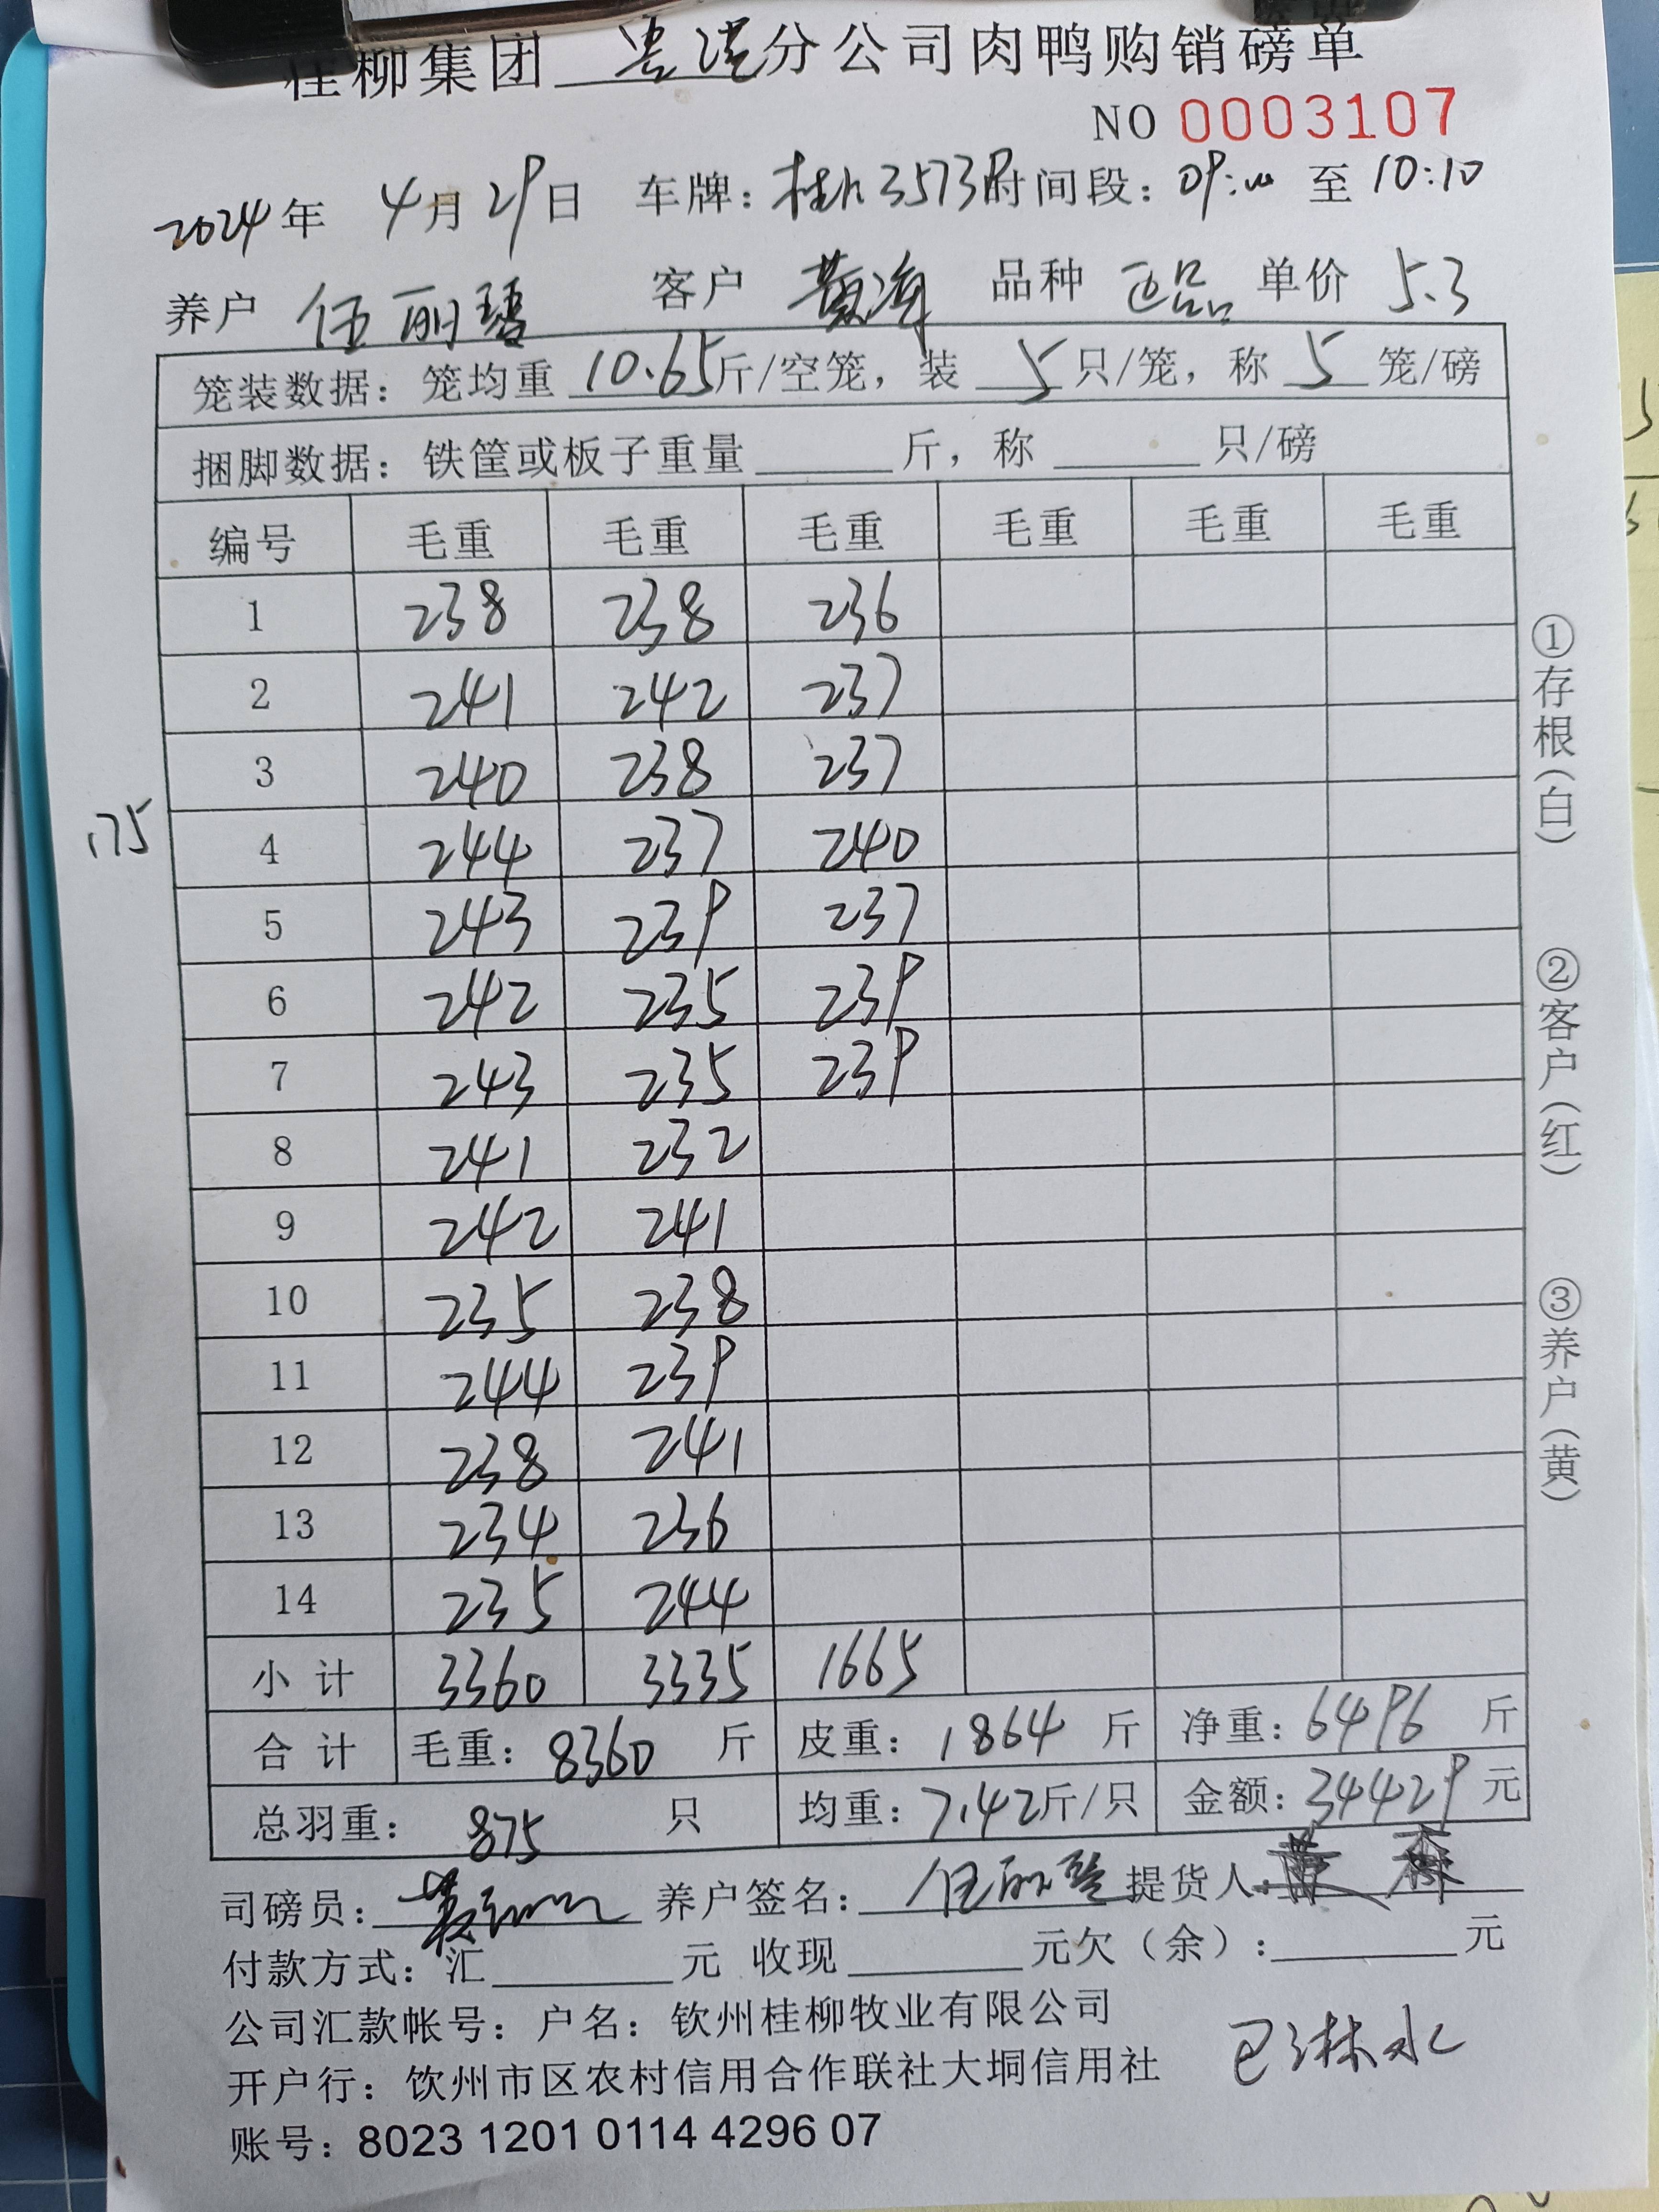 桂柳集团 贵港 分公司肉鸭购销磅单
NO 0003107
2024年 4月29日 车牌: 3573 时间段: 09:00 至 10:10
养户 伍丽 客户 黄海 品种 正品 单价 5.3
笼装数据: 笼均重 10.65 斤/空笼, 装 5 只/笼, 称 5 笼/磅
捆脚数据: 铁筐或板子重量 斤, 称 只/磅
编号 毛重 毛重 毛重 毛重 毛重 毛重
1 238 238 236
2 241 242 237
3 240 238 237
175
4 244 237 240
5 243 239 237
6 242 235 239
7 243 235 239
8 241 232
9 242 241
10 235 238
11 244 239
12 238 241
13 234 236
14 235 244
小计 3360 3335 1665
合计 毛重: 8360 斤 皮重: 1864 斤 净重: 6496 斤
总羽重: 875 只 均重: 7.42斤/只 金额: 34429 元
司磅员: 养户签名: 伍丽 提货人:
付款方式: 汇 元 收现 元欠(余): 元
公司汇款帐号: 户名: 钦州桂柳牧业有限公司
已淋水
开户行: 钦州市区农村信用合作联社大垌信用社
账号: 8023 1201 0114 4296 07
①存根(白) ②客户(红) ③养户(黄)